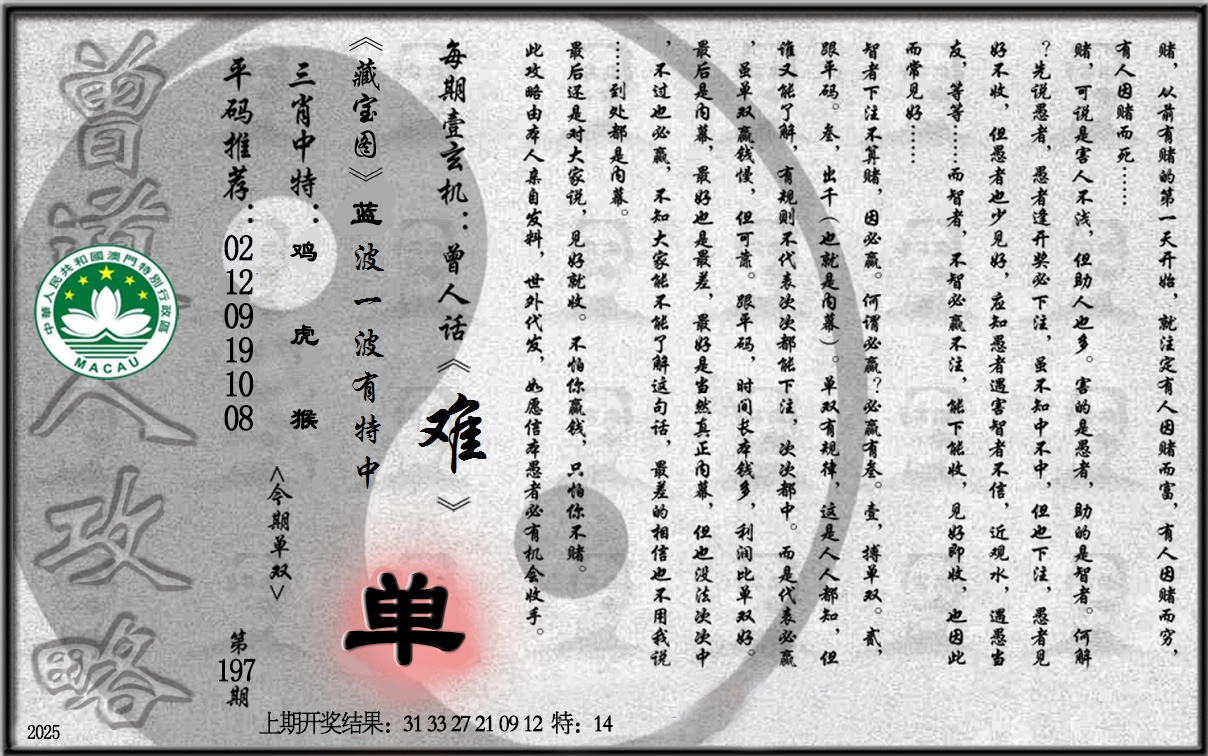 赌，从前有赌的第一天开始，就注定有人因赌而富，有人因赌而穷，
有人因赌而死……
赌，可说是害人不浅，但助人也多。害的是愚者，助的是智者。何解
？先说愚者，愚者逢开奖必下注，虽不知中不中，但也下注，愚者见
好不收，但愚者也少见好，应知愚者遇害智者不信，近观水，遇愚当
友，等等……而智者，不智必赢不注，能下能收，见好即收，也因此
而常见好……
智者下注不算赌，因必赢。何谓必赢？必赢有叁。壹，搏单双。贰，
跟平码。叁，出千（也就是内幕）。单双有规律，这是人人都知，但
谁又能了解，有规则不代表次次都能下注，次次都中。而是代表必赢
，虽单双赢钱慢，但可靠。跟平码，时间长本钱多，利润比单双好。
最后是内幕，最好也是最差，最好是当然真正内幕，但也没法次次中
，不过也必赢，不知大家能不能了解这句话，最差的相信也不用我说
……到处都是内幕。
最后还是对大家说，见好就收。不怕你赢钱，只怕你不赌。
此攻略由本人亲自发料，世外代发，如愿信本愚者必有机会收手。
每期壹玄机：曾人话《难》
《藏宝图》蓝波一波有特中
单
三肖中特：鸡 虎 猴
<今期单双>
平码推荐：02 12 09 19 10 08
第197期
曾道人攻略
中華人民共和國澳門特別行政區
MACAU
上期开奖结果：31 33 27 21 09 12 特：14
2025